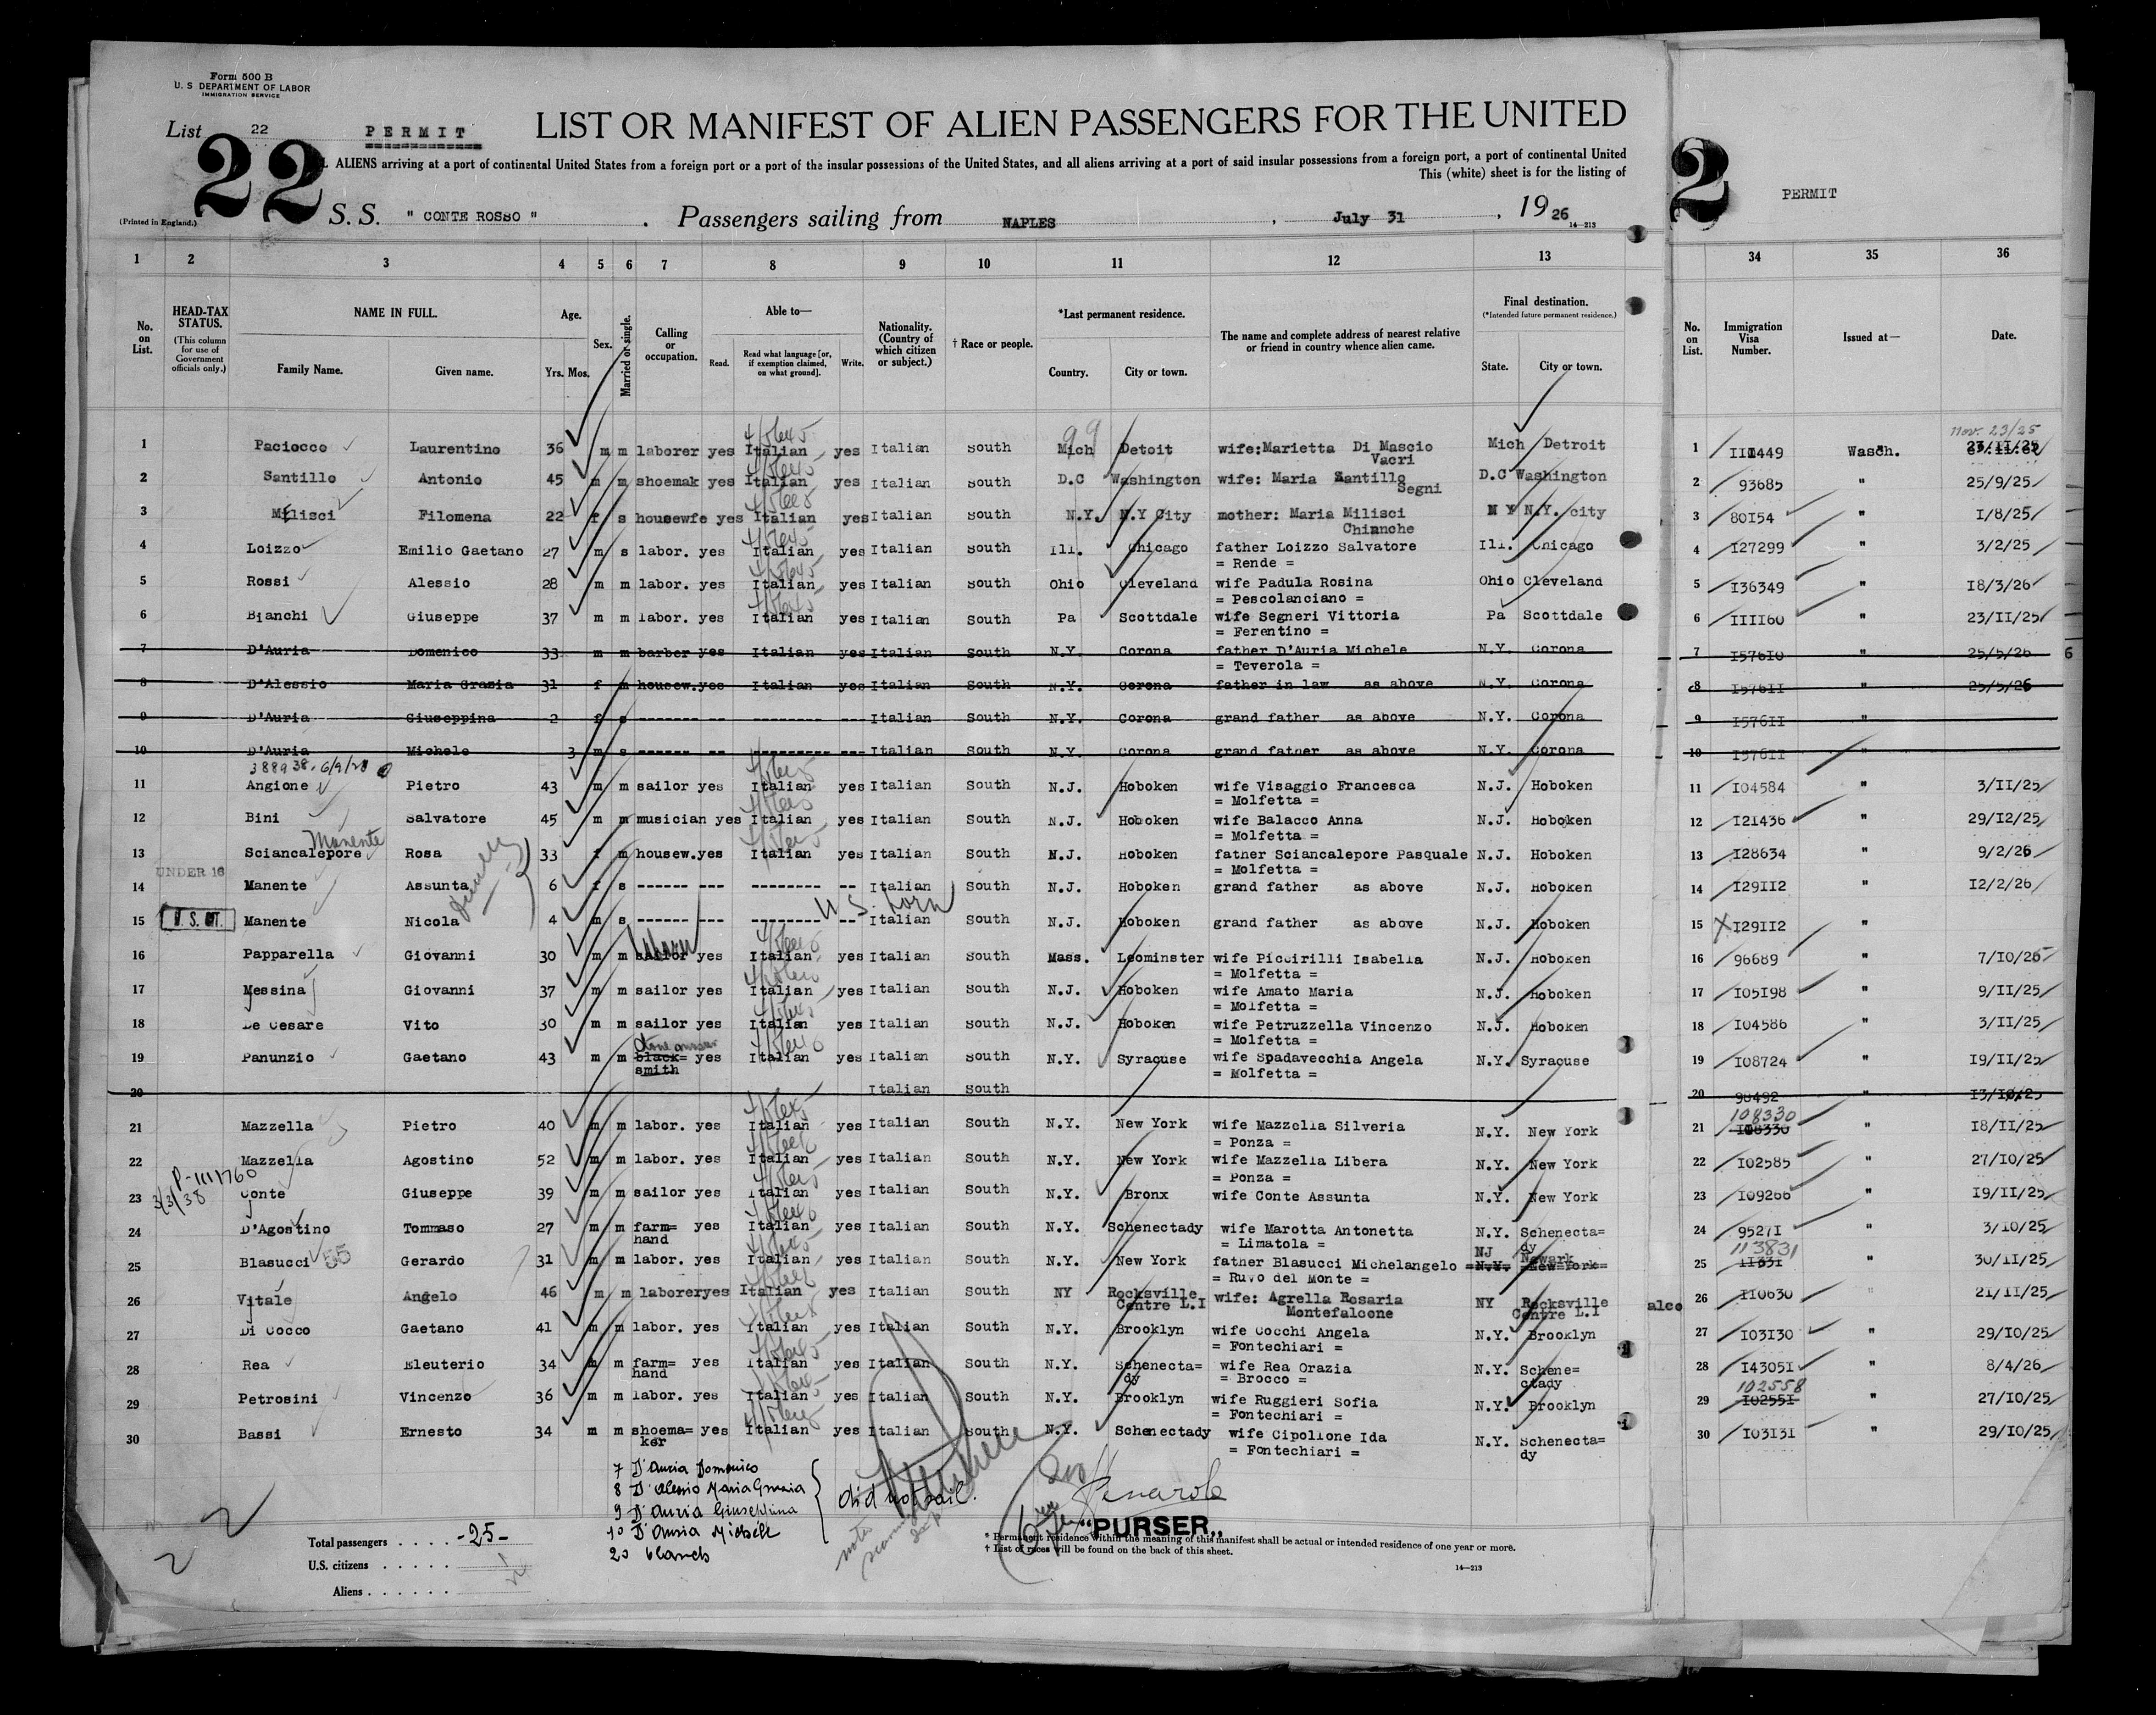 Form 500 B
U. S. DEPARTMENT OF LABOR
IMMIGRATION SERVICE
List 22 PERMIT LIST OR MANIFEST OF ALIEN PASSENGERS FOR THE UNITED
22
2
PERMIT
ALIENS arriving at a port of continental United States from a foreign port or a port of the insular possessions of the United States, and all aliens arriving at a port of said insular possessions from a foreign port, a port of continental United
This (white) sheet is for the listing of
(Printed in England.) S. S. " CONTE ROSSO " . Passengers sailing from NAPLES , July 31 , 1926
14—213
1 2 3 4 5 6 7 8 9 10 11 12 13 34 35 36
No. on List. HEAD-TAX STATUS. (This column for use of Government officials only.) NAME IN FULL. Family Name. Given name. Age. Yrs. Mos. Sex. Married or single. Calling or occupation. Able to— Read. Read what language [or, if exemption claimed, on what ground]. Write. Nationality. (Country of which citizen or subject.) † Race or people. *Last permanent residence. Country. City or town. The name and complete address of nearest relative or friend in country whence alien came. Final destination. (*Intended future permanent residence.) State. City or town. No. on List. Immigration Visa Number. Issued at— Date.
99 Nov. 23/25
1 Paciocco Laurentino 36 m m laborer yes Italian yes Italian South Mich Detoit wife:Marietta Di Mascio Vacri Mich Detroit 1 III449 Wasch. 23/II/25
2 Santillo Antonio 45 m m shoemak yes Italian yes Italian South D.C Washington wife: Maria Santillo Segni D.C Washington 2 93685 " 25/9/25
3 Milisci Filomena 22 f s housewfe yes Italian yes Italian South N.Y. N.Y City mother: Maria Milisci Chianche N Y N.Y. city 3 80I54 " I/8/25
4 Loizzo Emilio Gaetano 27 m s labor. yes Italian yes Italian South Ill. Chicago father Loizzo Salvatore = Rende = Ill. Chicago 4 I27299 " 3/2/25
5 Rossi Alessio 28 m m labor. yes Italian yes Italian South Ohio Cleveland wife Padula Rosina = Pescolanciano = Ohio Cleveland 5 I36349 " I8/3/26
6 Bianchi Giuseppe 37 m m labor. yes Italian yes Italian South Pa Scottdale wife Segneri Vittoria = Ferentino = Pa Scottdale 6 IIII60 " 23/II/25
7 D'Auria Domenico 33 m m barber yes Italian yes Italian South N.Y. Corona father D'Auria Michele = Teverola = N.Y. Corona 7 I576I0 " 25/5/26 6
8 D'Alessio Maria Grazia 31 f m housew.yes Italian yes Italian South N.Y. Corona father in law as above N.Y. Corona 8 I576II " 25/5/26
9 D'Auria Giuseppina 2 f s ------ -- -------- -- Italian South N.Y. Corona grand father as above N.Y. Corona 9 I576II "
10 D'Auria Michele 3 m s ------ -- --------- --- Italian South N.Y. Corona grand father as above N.Y. Corona 10 I576II "
388938. 6/9/28
11 Angione Pietro 43 m m sailor yes Italian yes Italian South N.J. Hoboken wife Visaggio Francesca = Molfetta = N.J. Hoboken 11 I04584 " 3/II/25
12 Bini Salvatore 45 m m musician yes Italian yes Italian South N.J. Hoboken wife Balacco Anna = Molfetta = N.J. Hoboken 12 I21436 " 29/I2/25
Manente
13 Sciancalepore Rosa 33 f m housew.yes Italian yes Italian South N.J. Hoboken father Sciancalepore Pasquale = Molfetta = N.J. Hoboken 13 I28634 " 9/2/26
UNDER 16
14 Manente Assunta 6 f s ------ --- -------- -- Italian South N.J. Hoboken grand father as above N.J. Hoboken 14 I29II2 " I2/2/26
U. S. born
15 U. S. CIT. Manente Nicola 4 m s ------ --- -------- -- Italian South N.J. Hoboken grand father as above N.J. Hoboken 15 X I29II2 "
16 Papparella Giovanni 30 m m sailor yes Italian yes Italian South Mass. Leominster wife Piccirilli Isabella = Molfetta = N.J. Hoboken 16 96689 " 7/IO/25
17 Messina Giovanni 37 m m sailor yes Italian yes Italian South N.J. Hoboken wife Amato Maria = Molfetta = N.J. Hoboken 17 I05I98 " 9/II/25
18 De Cesare Vito 30 m m sailor yes Italian yes Italian South N.J. Hoboken wife Petruzzella Vincenzo = Molfetta = N.J. Hoboken 18 I04586 " 3/II/25
19 Panunzio Gaetano 43 m m black= smith yes Italian yes Italian South N.Y. Syracuse wife Spadavecchia Angela = Molfetta = N.Y. Syracuse 19 I08724 " I9/II/25
20 Italian South 20 98492 " I3/IO/25
108330
21 Mazzella Pietro 40 m m labor. yes Italian yes Italian South N.Y. New York wife Mazzella Silveria = Ponza = N.Y. New York 21 I08330 " I8/II/25
22 Mazzella Agostino 52 m m labor. yes Italian yes Italian South N.Y. New York wife Mazzella Libera = Ponza = N.Y. New York 22 I02585 " 27/IO/25
3/3/38
23 Conte Giuseppe 39 m m sailor yes Italian yes Italian South N.Y. Bronx wife Conte Assunta N.Y. New York 23 I09266 " I9/II/25
24 D'Agostino Tommaso 27 m m farm= hand yes Italian yes Italian South N.Y. Schenectady wife Marotta Antonetta = Limatola = N.Y. Schenecta= dy 24 9527I " 3/IO/25
NJ Newark 113831
25 Blasucci 55 Gerardo 31 m m labor. yes Italian yes Italian South N.Y. New York father Blasucci Michelangelo = Ruvo del Monte = N.Y. New York 25 II83I " 30/II/25
26 Vitale Angelo 46 m m laborer yes Italian yes Italian South NY Rocksville Centre L.I wife: Agrella Rosaria Montefalcone NY Rocksville Centre L.I alco 26 II0630 " 2I/II/25
27 Di Cocco Gaetano 41 m m labor. yes Italian yes Italian South N.Y. Brooklyn wife Cocchi Angela = Fontechiari = N.Y. Brooklyn 27 I03I30 " 29/IO/25
28 Rea Eleuterio 34 m m farm= hand yes Italian yes Italian South N.Y. Schenecta= dy wife Rea Orazia = Brocco = N.Y. Schene= ctady 28 I4305I " 8/4/26
102558
29 Petrosini Vincenzo 36 m m labor. yes Italian yes Italian South N.Y. Brooklyn wife Ruggieri Sofia = Fontechiari = N.Y. Brooklyn 29 I0255I " 27/IO/25
30 Bassi Ernesto 34 m m shoema= ker yes Italian yes Italian South N.Y. Schenectady wife Cipollone Ida = Fontechiari = N.Y. Schenecta= dy 30 I03I3I " 29/IO/25
7 D'Auria Domenico
8 D'Alessio Maria Grazia
9 D'Auria Giuseppina
10 D'Auria Michele
did not sail.
20 blanch
"PURSER"
Total passengers . . . . -25-
U.S. citizens . . . . .
Aliens . . . . . .
* Permanent residence within the meaning of this manifest shall be actual or intended residence of one year or more.
† List of races will be found on the back of this sheet.
14—213